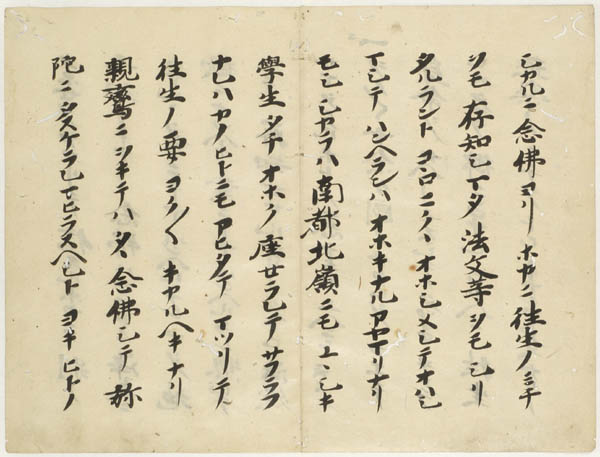 シカルニ念佛ヨリホカニ往生ノミチ
ヲモ存知シマタ法文等ヲモシリ
タルラントコヽロニクヽオホシメシテオハシ
マシテハンヘランハオホキナルアヤマリナリ
モシシカラハ南都北嶺ニモユヽシキ
學生タチオホク座セラレテサフラフ
ナレハカノヒトニモアヒタテマツリテ
往生ノ要ヨク〱キカルヘキナリ
親鸞ニヲキテハタヽ念佛シテ弥
陀ニタスケラレマヒラスヘシトヨキヒトノ